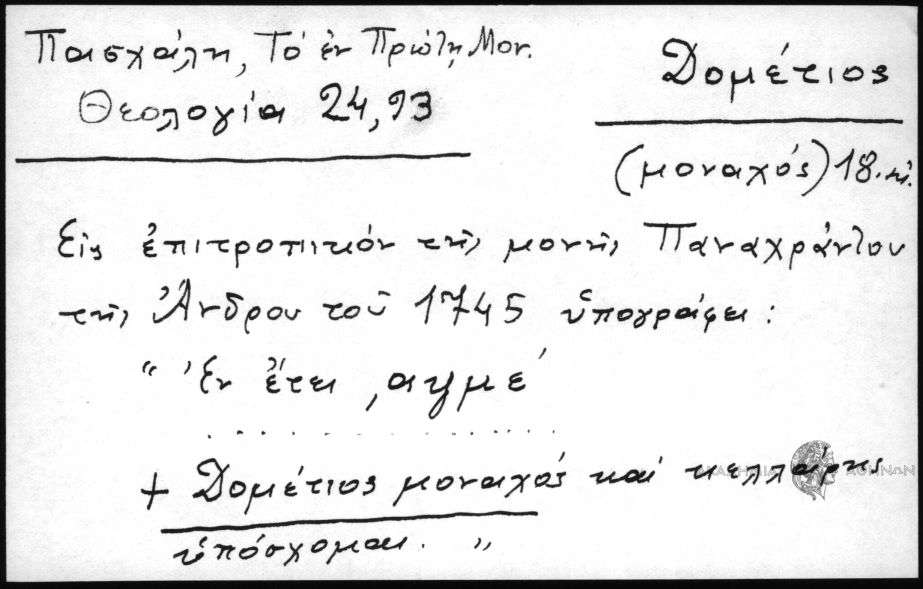 Πασχάλη, Τό ἐν Πρώτῃ Μον.
Θεολογία 24, 93
Δομέτιος
(μοναχός) 18. αἰ.
Εἰς ἐπιτροπικόν τῆς μονῆς Παναχράντου
τῆς Ἄνδρου τοῦ 1745 ὑπογράφει :
“ Ἐν ἔτει ,αψμέ
. . . . . . . . . . . . .
+ Δομέτιος μοναχός καί κελλάρης
ὑπόσχομαι. „
ΑΘΗΝΩΝ